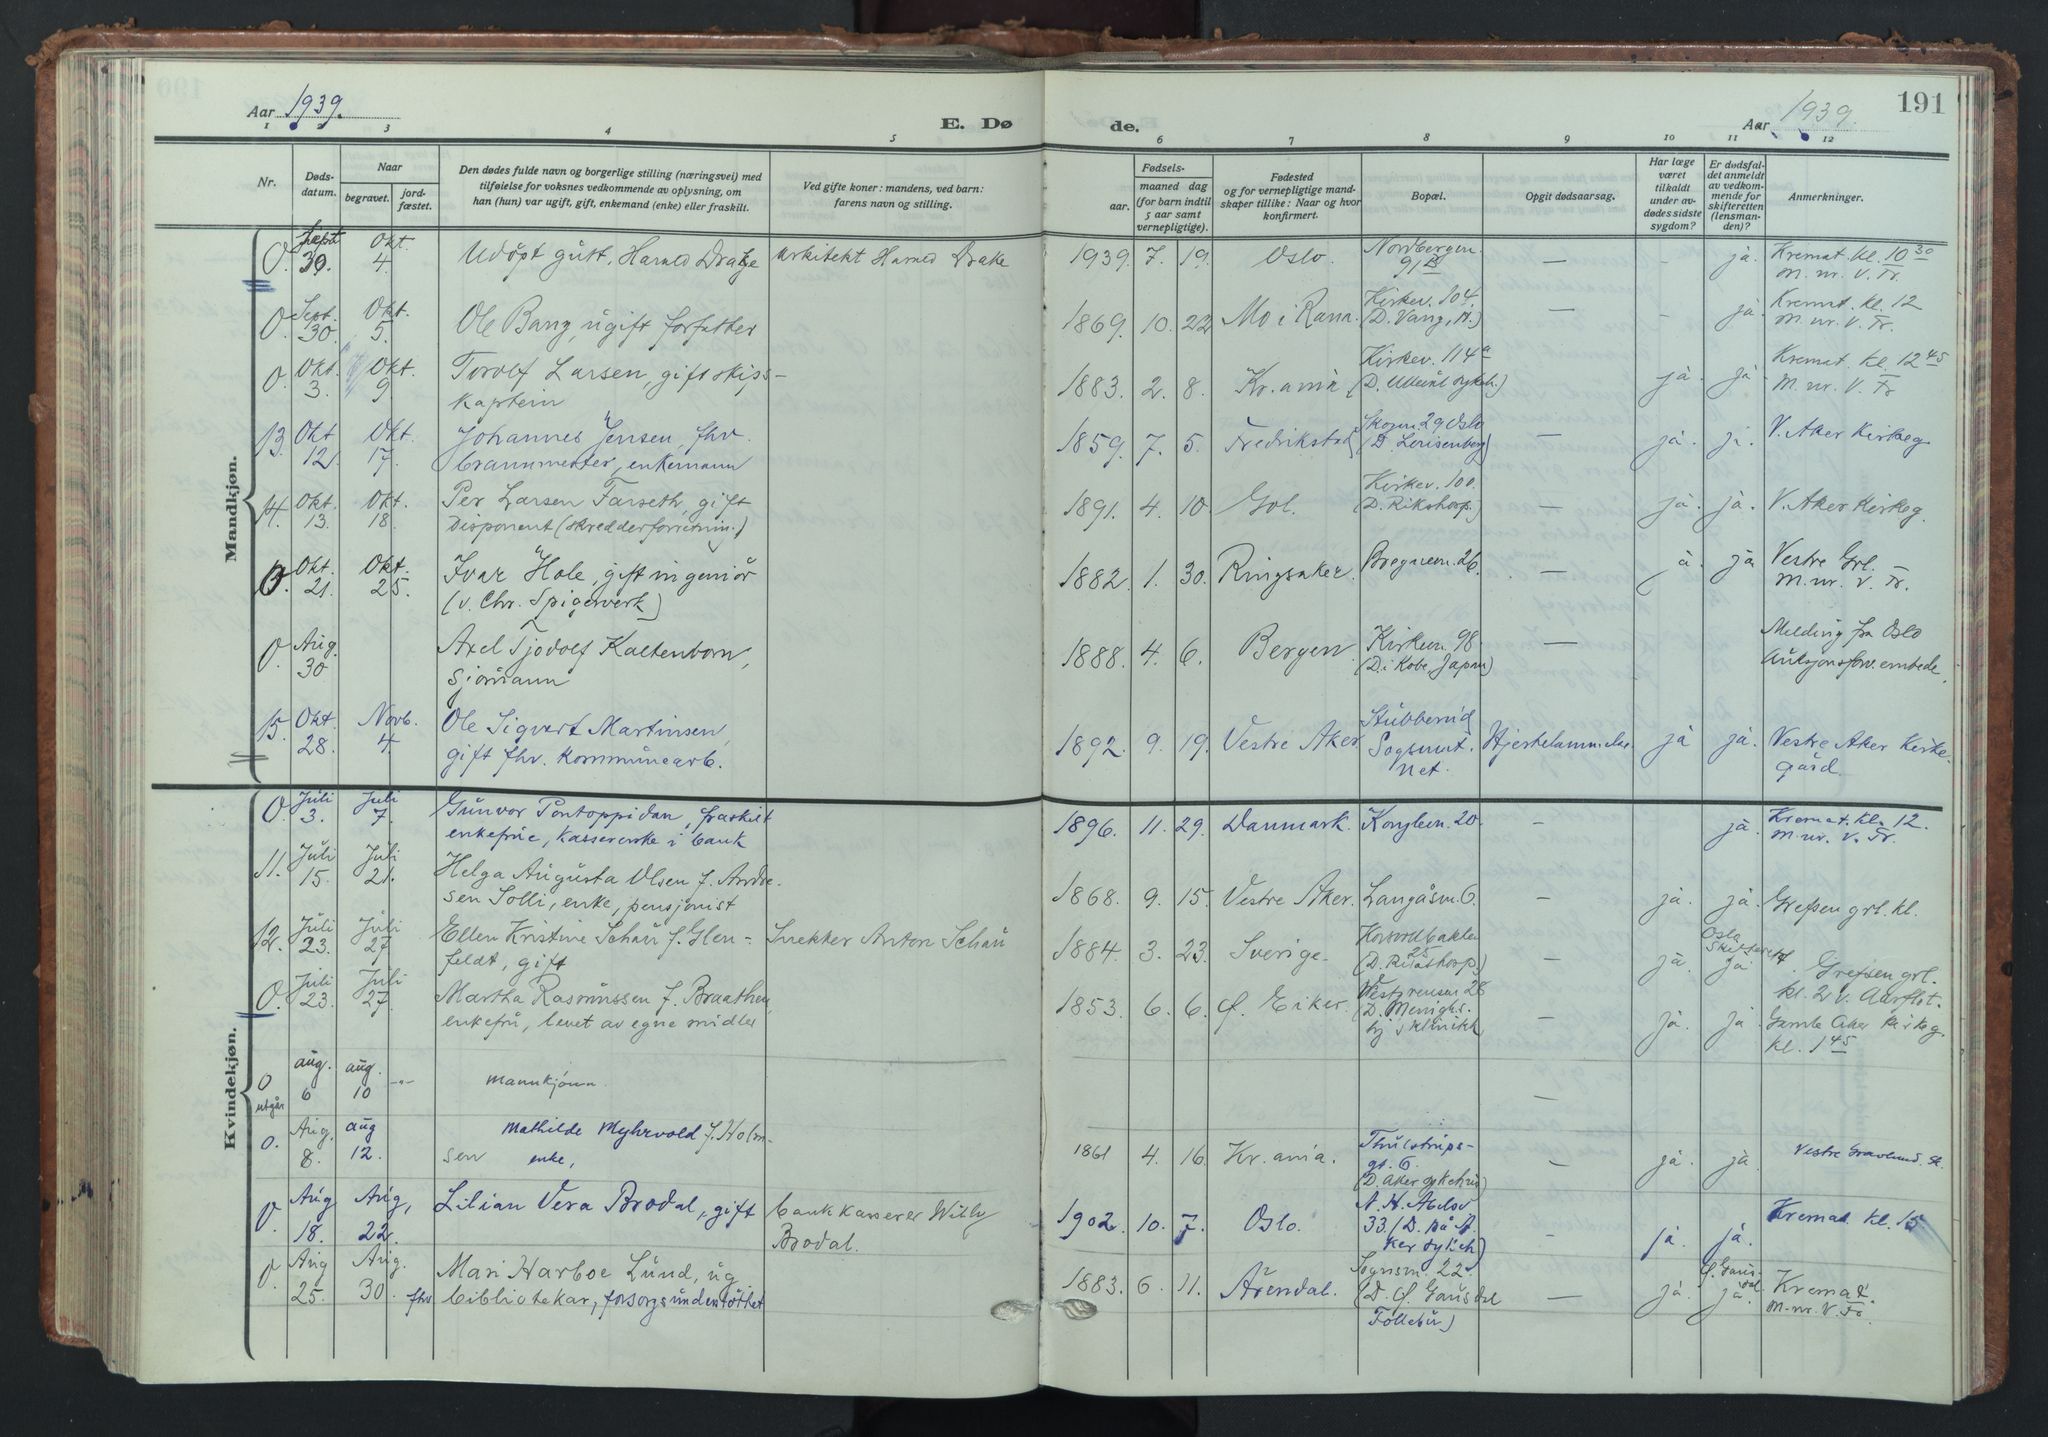 Aar 1939.
E. Døde.
Aar 1939.
191
1 2 3 4 5 6 7 8 9 10 11 12
Nr.
Døds-
datum.
Naar
begravet.
jord-
fæstet.
Den dødes fulde navn og borgerlige stilling (næringsvei) med
tilføielse for voksnes vedkommende av oplysning, om
han (hun) var ugift, gift, enkemand (enke) eller fraskilt.
Ved gifte koner: mandens, ved barn:
farens navn og stilling.
Fødsels-
aar.
maaned dag
(for barn indtil
5 aar samt
vernepligtige).
Fødested
og for vernepligtige mand-
skaper tillike: Naar og hvor
konfirmert.
Bopæl.
Opgit dødsaarsag.
Har læge
været
tilkaldt
under av-
dødes sidste
sygdom?
Er dødsfal-
det anmeldt
av vedkom-
mende for
skifteretten
(lensman-
den)?
Anmerkninger.
Mandkjøn.
0. Sept. 30. Okt. 4. Udöpt gutt, Harned Drake arkitekt Harned Drake 1939. 7. 19. Oslo. Nordbergen 91B — - ja. Kremat. kl. 10 30
M. nr. V. Fr.
0 Sept. 30. Okt. 5. Ole Bang, ugift forfatter 1869. 10. 22 Mo i Rana. Kirkev. 104.
(D. Vang, H.) — - ja. Kremat kl. 12
M. nr. V. Fr.
0. Okt. 3. Okt. 9 Torolf Larsen, gift skips-
kaptein 1883. 2. 8. Kr.ania Kirkev. 114a
(D. Ullevål sykeh.) ja. ja Kremat. kl. 12 45
M. nr. V. Fr
13. Okt 12. Okt. 17. Johannes Jensen, fhv.
brannmester, enkemann 1859. 7. 5. Fredrikstad Skogm. 29 Oslo
(D. Lovisenberg) — ja. ja. V. Aker Kirkeg.
14. Okt. 13. Okt. 18. Per Larsen Farseth, gift
Disponent (skredderforretnin.) 1891. 4. 10. Gol. Kirkev. 100.
(D. Rikshosp.) — ja. ja. V. Aker Kirkeg.
0. Okt. 21. Okt. 25. Ivar Hole, gift ingeniör
(v. Chr. Spigerverk) 1882. 1. 30. Ringsaker. Bregnevn. 26. — ja ja Vestre Grl.
M. nr. V. Fr.
0. Aug. 30 Axel Tjodolf Kaltenborn,
Sjömann 1888. 4. 6. Bergen Kirkevn. 98.
(D. i Kobe, Japan) — Melding fra Oslo
Auksjonsforv. embede.
15. Okt 28. Novb. 4. Ole Sigvert Martinsen,
gift fhv. kommunearb. 1892. 9. 19. Vestre Aker Stubberud
Sognsvat-
net. Hjertelammelse ja ja. Vestre Aker Kirke-
gård.
Kvindekjøn.
0. Juli 3. Juli 7. Gunvor Pontoppidan, fraskilt
enkefrue, kassererske i bank 1896. 11. 29. Danmark. Konglevn. 20. - ja. Kremat. kl. 12.
M. nr. V. Fr.
11. Juli 15. Juli 21. Helga Augusta Olsen f. Andre-
sen Solli, enke, pensjonist 1868. 9. 15. Vestre Aker. Langåsv. 6. - ja. ja. Grefsen grl. kl.
12. Juli 23. Juli 27 Ellen Kristine Schau f. Glen-
feldt, gift Snekker Anton Schau 1884. 3. 23. Sverige. Korsvoldbakken
25
(D. Rikshosp.) — ja. Oslo
Skifterett
ja Grefsen grl.
kl. 2 v. Aarflot.
0. Juli 23. Juli 27. Martha Rasmussen f. Braathen,
enkefru, levet av egne midler 1853. 6. 6. Ø. Eiker. Vestgrensen 28
(D. Menighs.
- ja. ja. Gamle Aker Kirkeg.
kl. 1 45
0
utgår aug. 6 aug. 10 -"- mannkjönn. —
0. Aug. 8. aug 12. Mathilde Myhrvold f. Holm-
sen enke, 1861 4. 16. Kr.ania. Thulstrups-
gt. 6.
(D. Aker sykehus) — ja. ja Vestre Gravlund.
0. Aug 18. Aug, 22. Lilian Vera Brodal, gift bankkasserer Willy
Brodal. 1902. 10. 7. Oslo. N. H. Abelsv
33 (D. på A-
ker sykeh) - ja. ja. Kremat kl. 15
0. Aug 25. Aug. 30. Mari Harboe Lund, ug
fhv bibliotekar, forsorgsunderstöttet 1883. 6. 11. Arendal. Sognsv. 22.
(D. Ø. Gausdal
Follebu) — ja. Ø. Gaus-
dal
ja Kremat.
M. nr. V. Fr.